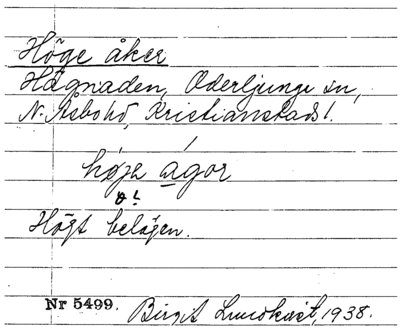 Höge åker
Hägnaden, Oderljunga sn,
N. Åsbo hd, Kristianstads l.
høja ågor
ø!
Högt belägen.
Nr 5499. Birgit Lundkvist, 1938.